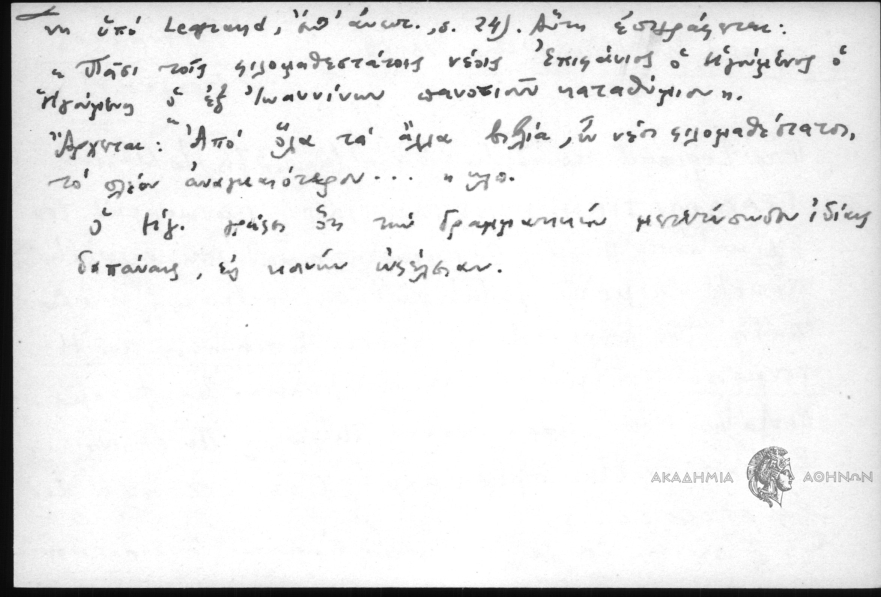 νη ὑπό Legrand, ἔνθ' ἀνωτ., σ. 24). Αὕτη ἐπιγράφεται:
« Πᾶσι τοῖς φιλομαθεστάτοις νέοις Ἐπιφάνιος ὁ Ἡγούμενος ὁ
Ἡγούμενος ὁ ἐξ Ἰωαννίνων καταθύμιον ».
Ἄρχεται: "Ἀπό ὅλα τά ἄλλα βιβλία, ὦ νέοι φιλομαθέστατοι,
τό πλέον ἀναγκαιότερον... " κλπ.
Ὁ Ἡγ. τήν Γραμματικήν μετετύπωσεν ἰδίαις
δαπάναις, εἰς κοινήν ὠφέλειαν.
ΑΚΑΔΗΜΙΑ ΑΘΗΝΩΝ